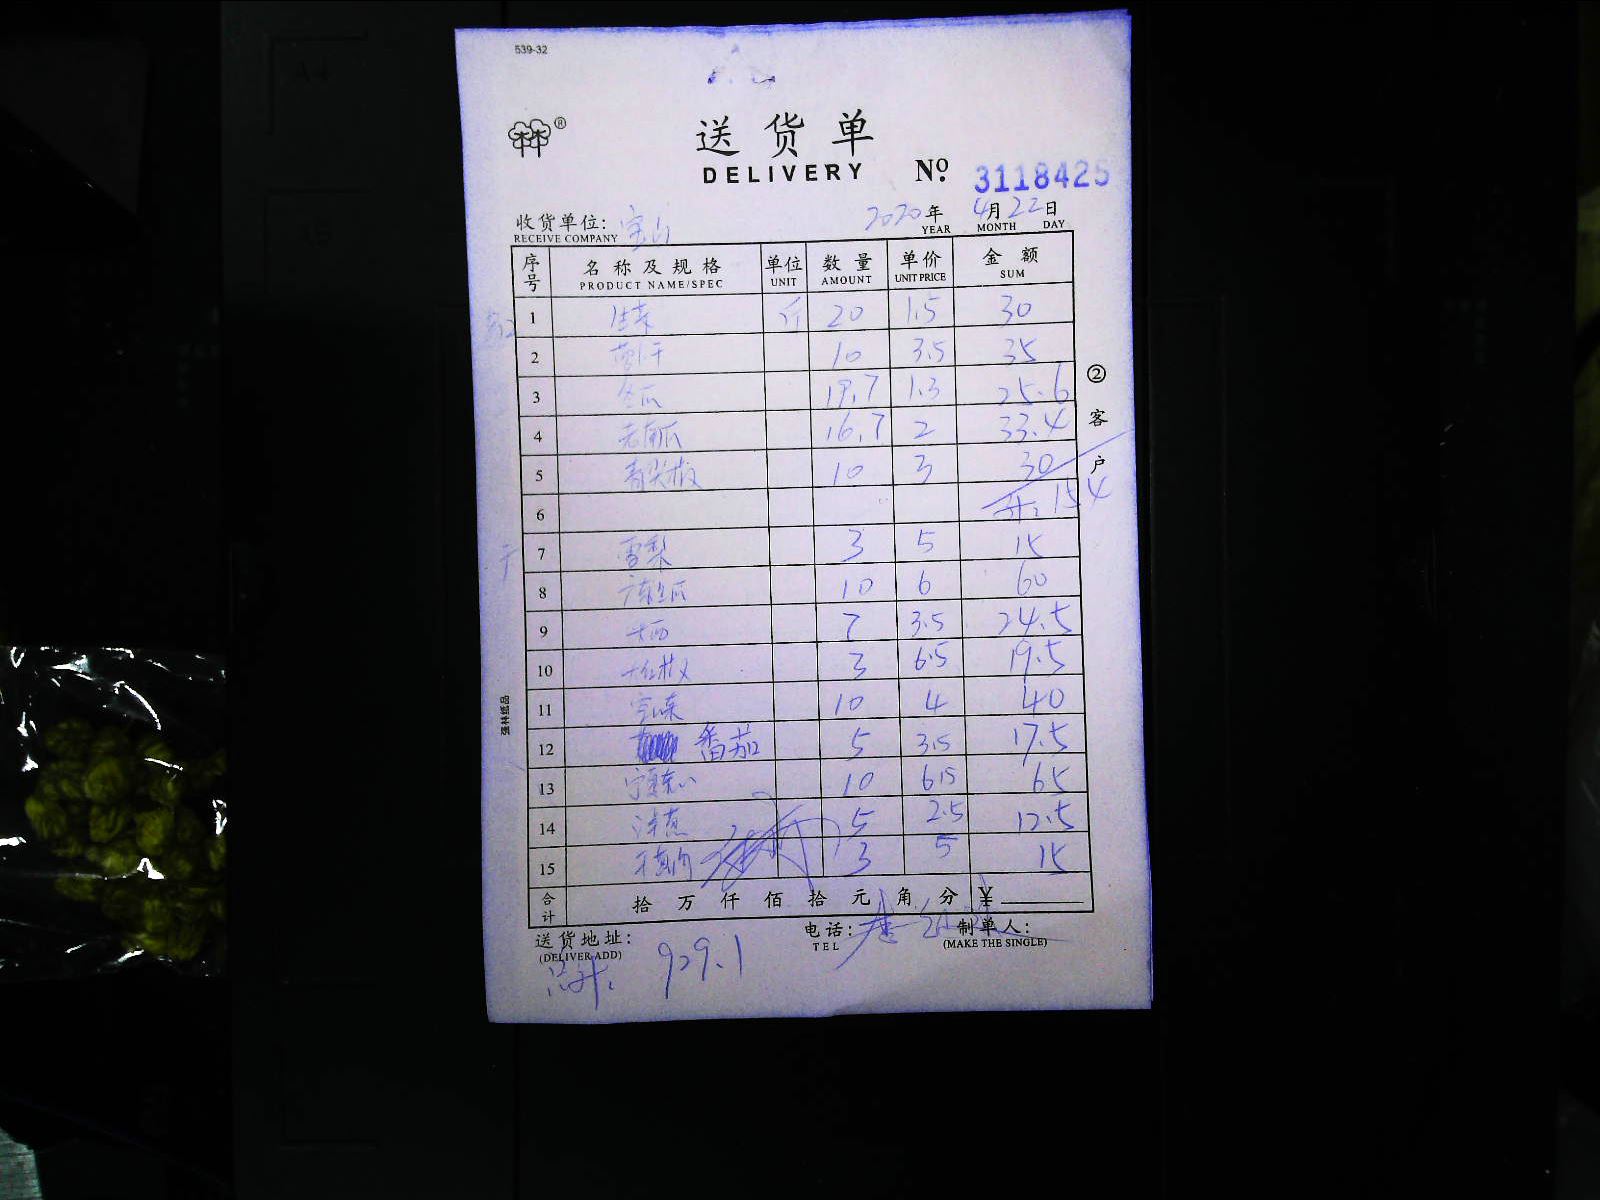 539-32
送货单
DELIVERY № 3118425
收货单位: 宝山 2020年 4月 22日
RECEIVE COMPANY YEAR MONTH DAY
序号 名称及规格 单位 数量 单价 金额
PRODUCT NAME/SPEC UNIT AMOUNT UNIT PRICE SUM
1 生菜 斤 20 1.5 30
2 10 3.5 35
3 冬瓜 19.7 1.3 25.6
4 老南瓜 16.7 2 33.4
5 青尖椒 10 3 30
6 计: 154
7 雪梨 3 5 15
8 10 6 60
9 大西 7 3.5 24.5
10 大红椒 3 6.5 19.5
11 10 4 40
12 番茄 5 3.5 17.5
13 宁夏菜心 10 6.5 65
14 洋葱 5 2.5 12.5
15 3 5 15
合计 拾 万 仟 佰 拾 元 角 分 ¥
送货地址: 电话: 制单人:
(DELIVER ADD) TEL (MAKE THE SINGLE)
总计: 929.1
② 客户
强林纸品